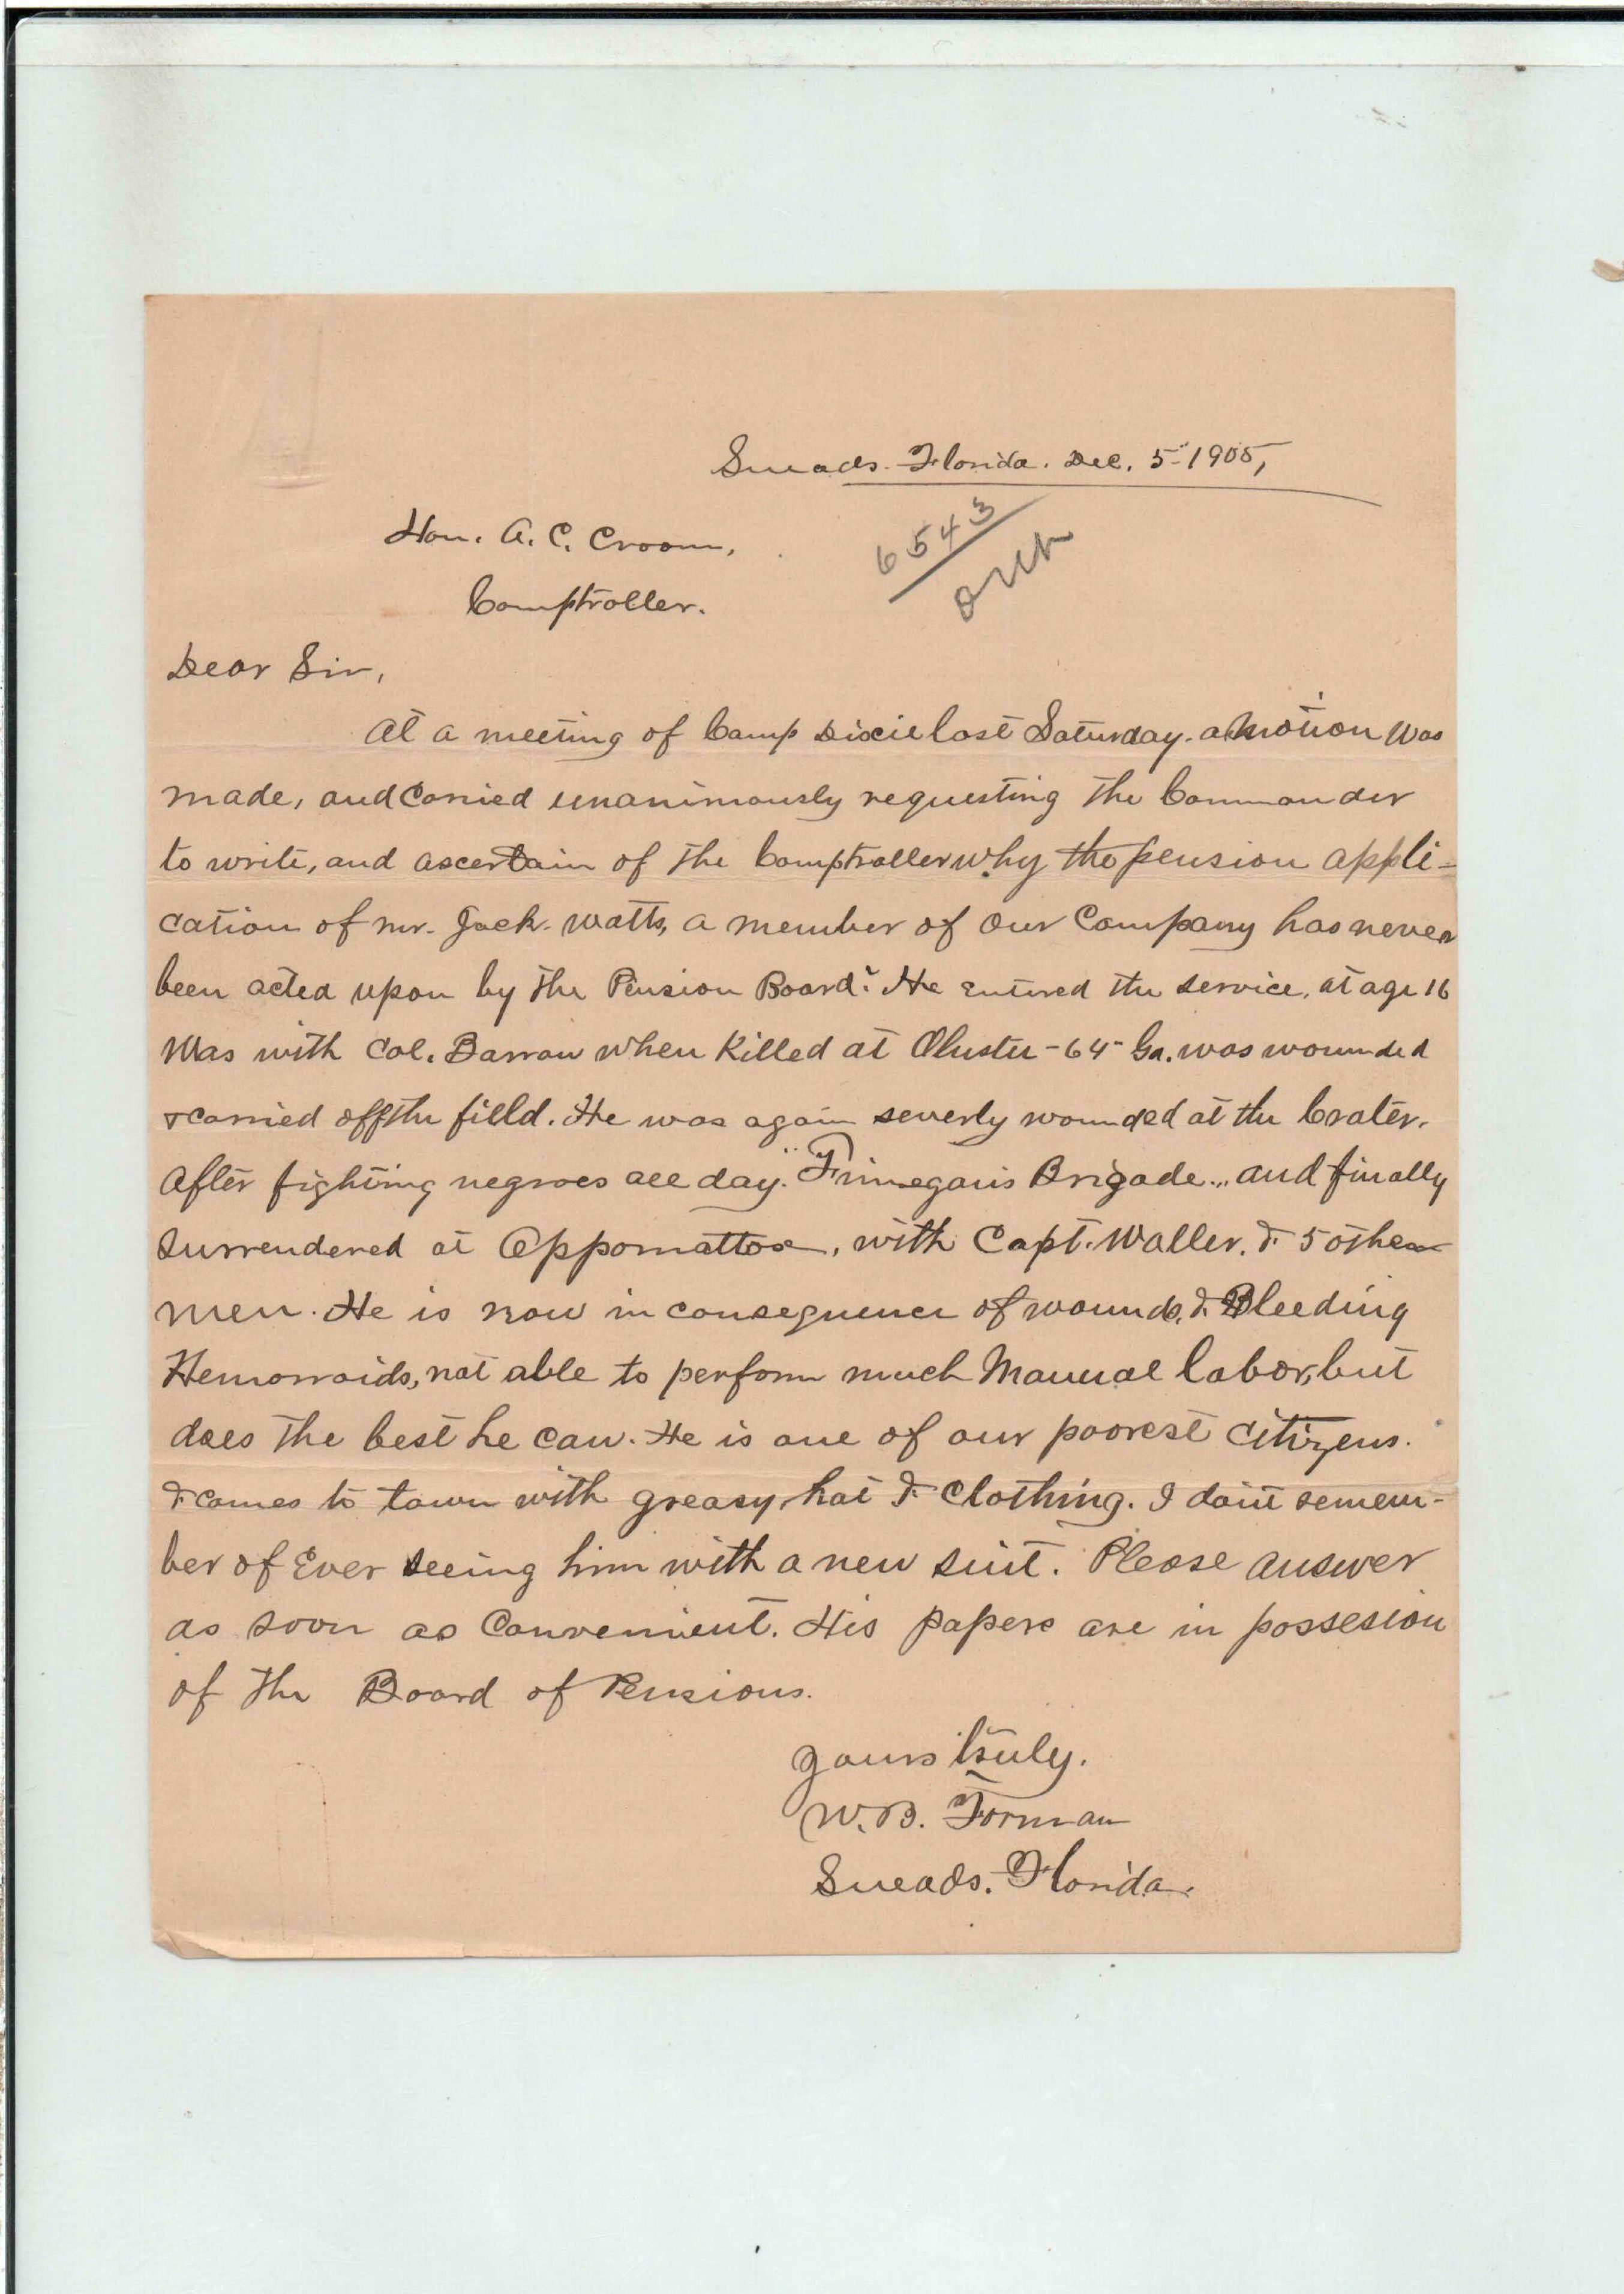 Sneads. Florida. Dec. 5" 1905,
6543
Hon. A. C. Croom,
Comptroller.
Dear Sir,
At a meeting of Camp Dixie last Saturday. a Motion Was
made, and Carried unanimously requesting the Commander
to write, and ascertain of the Comptroller why the pension appli-
cation of mr. Jack. Watts, a member of our Company has never
been acted upon by the Pension Board? He entered the service, at age 16
Was with Col. Barrow when Killed at Olustee - 64" Ga. was wounded
& carried off the filld. He was again severly wounded at the Crater.
after fighting negroes all day. Finnegan's Brigade.., and finally
Surrendered at Appomattox, with Capt. Waller. & 5 other
men. He is now in consequence of wounds, & Bleeding
Hemorroids, not able to perform much Manual labor, but
does the best he can. He is one of our poorest Citizens.
& comes to town with greasy hat & Clothing. I don't remem-
ber of Ever seeing him with a new suit. Please answer
as soon as Convenient. His papers are in possesion
of the Board of Pensions.
yours truly.
W. B. Forman
Sneads. Florida.